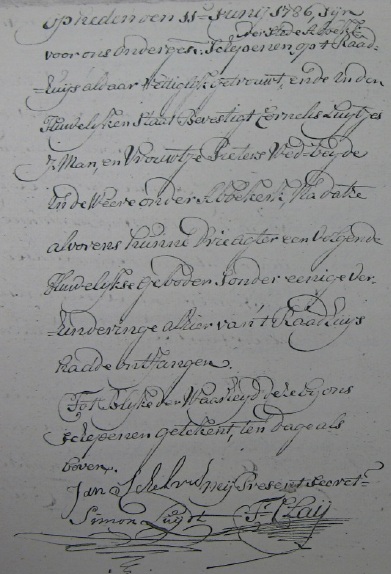 Op heden den 11e Junij 1786, Sijn
voor ons ondergesz. Schepenen op 't Raad-
huijs aldaar Wettiglijk getrouwt, ende in den
Huwelijken Staat bevestigt Cornelis Luijtjes
J: Man, en Vrouwtje Pieters Wed: beijde
in de Weere onder Abbekerk, Na dat ze
alvorens hunne drie agter een volgende
Huwelijkse geboden sonder eenige ver-
hinderinge alhier van 't Raadhuijs
hadde ontfangen.
Tot blijke der Waarheijd deze bij ons
Schepenen getekent, ten dage als
boven.
Jan Mij Present Secret:
Simon Luijt